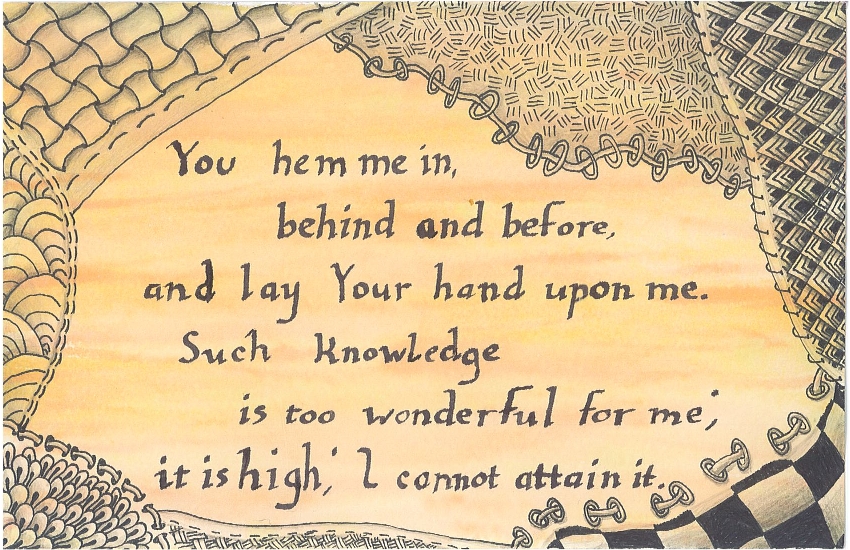 You hem me in,
behind and before,
and lay Your hand upon me.
Such knowledge
is too wonderful for me;
it is high; I cannot attain it.